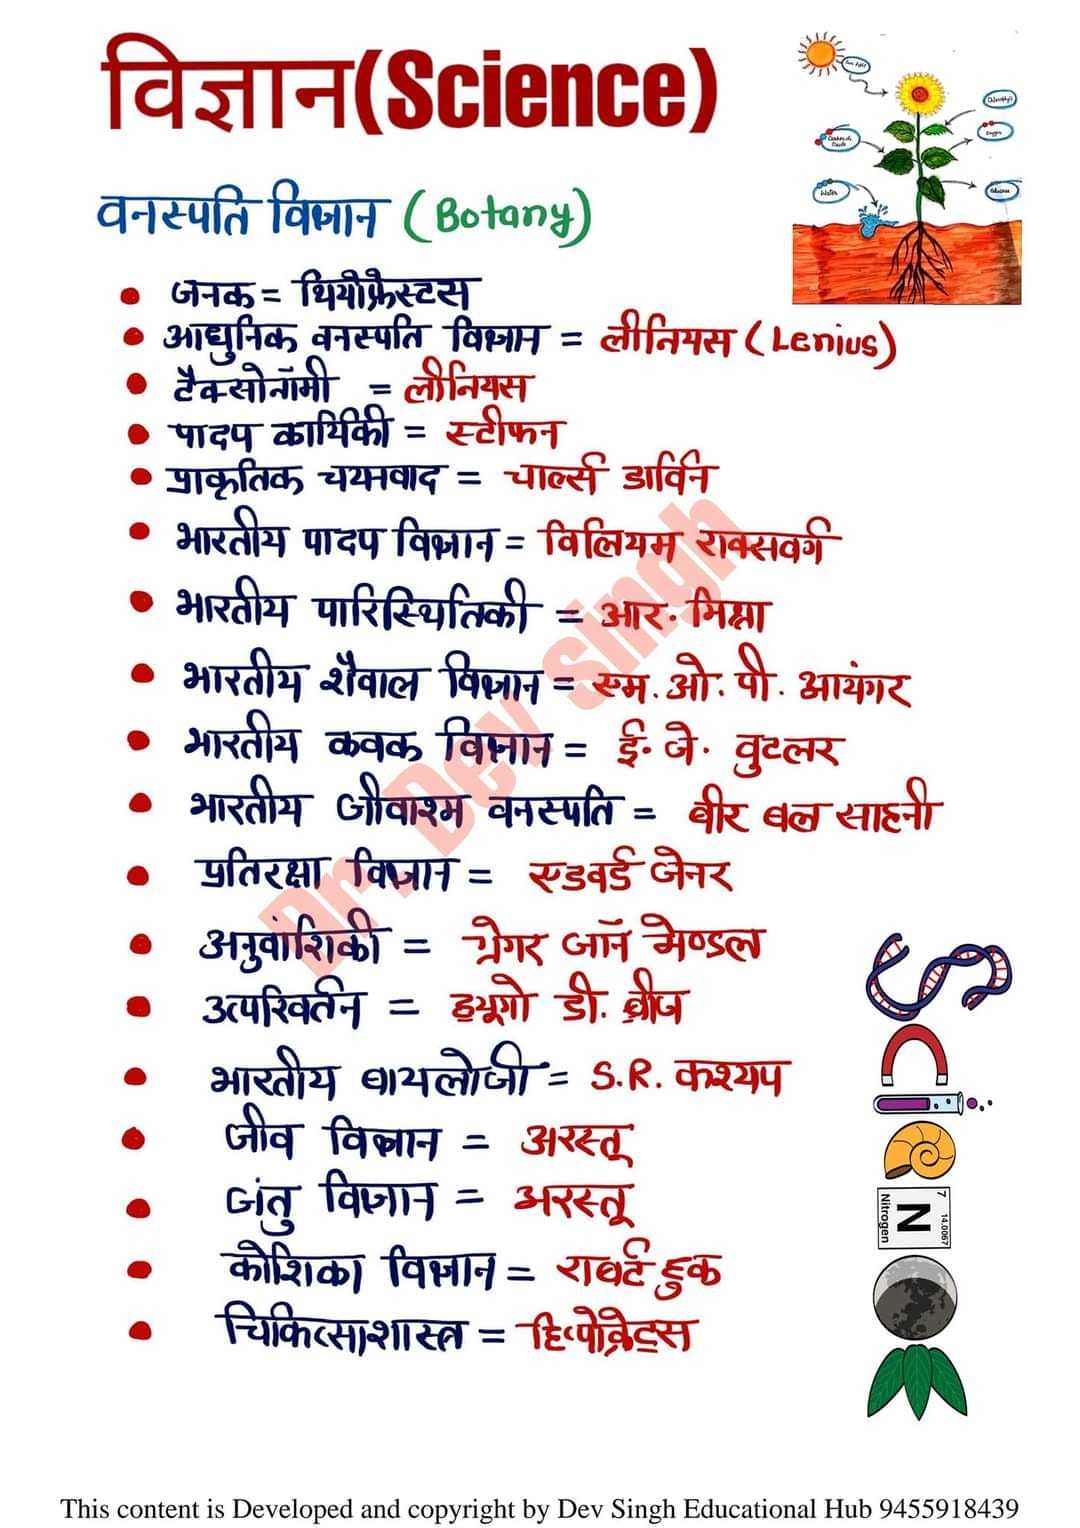 विज्ञान(Science)
वनस्पति विज्ञान (Botany)
जनक = थियोफ्रैस्टस
आधुनिक वनस्पति विज्ञान = लीनियस (Lenius)
टैक्सोनॉमी = लीनियस
पादप कार्यिकी = स्टीफन
प्राकृतिक चयनवाद = चार्ल्स डार्विन
भारतीय पादप विज्ञान = विलियम राक्सवर्ग
भारतीय पारिस्थितिकी = आर. मिश्रा
भारतीय शैवाल विज्ञान = एम. ओ. पी. आयंगर
भारतीय कवक विज्ञान = ई. जे. वुटलर
भारतीय जीवाश्म वनस्पति = बीर बल साहनी
प्रतिरक्षा विज्ञान = एडवर्ड जेनर
अनुवांशिकी = ग्रेगर जॉन मेण्डल
उत्परिवर्तन = ह्यूगो डी. ब्रीज
भारतीय वायलोजी = S.R. कश्यप
जीव विज्ञान = अरस्तू
जंतु विज्ञान = अरस्तू
कोशिका विज्ञान = रावर्ट हुक
चिकित्साशास्त्र = हिप्पोक्रेट्स
Dr. Dev Singh
Water
7 14.0067
N
Nitrogen
This content is Developed and copyright by Dev Singh Educational Hub 9455918439